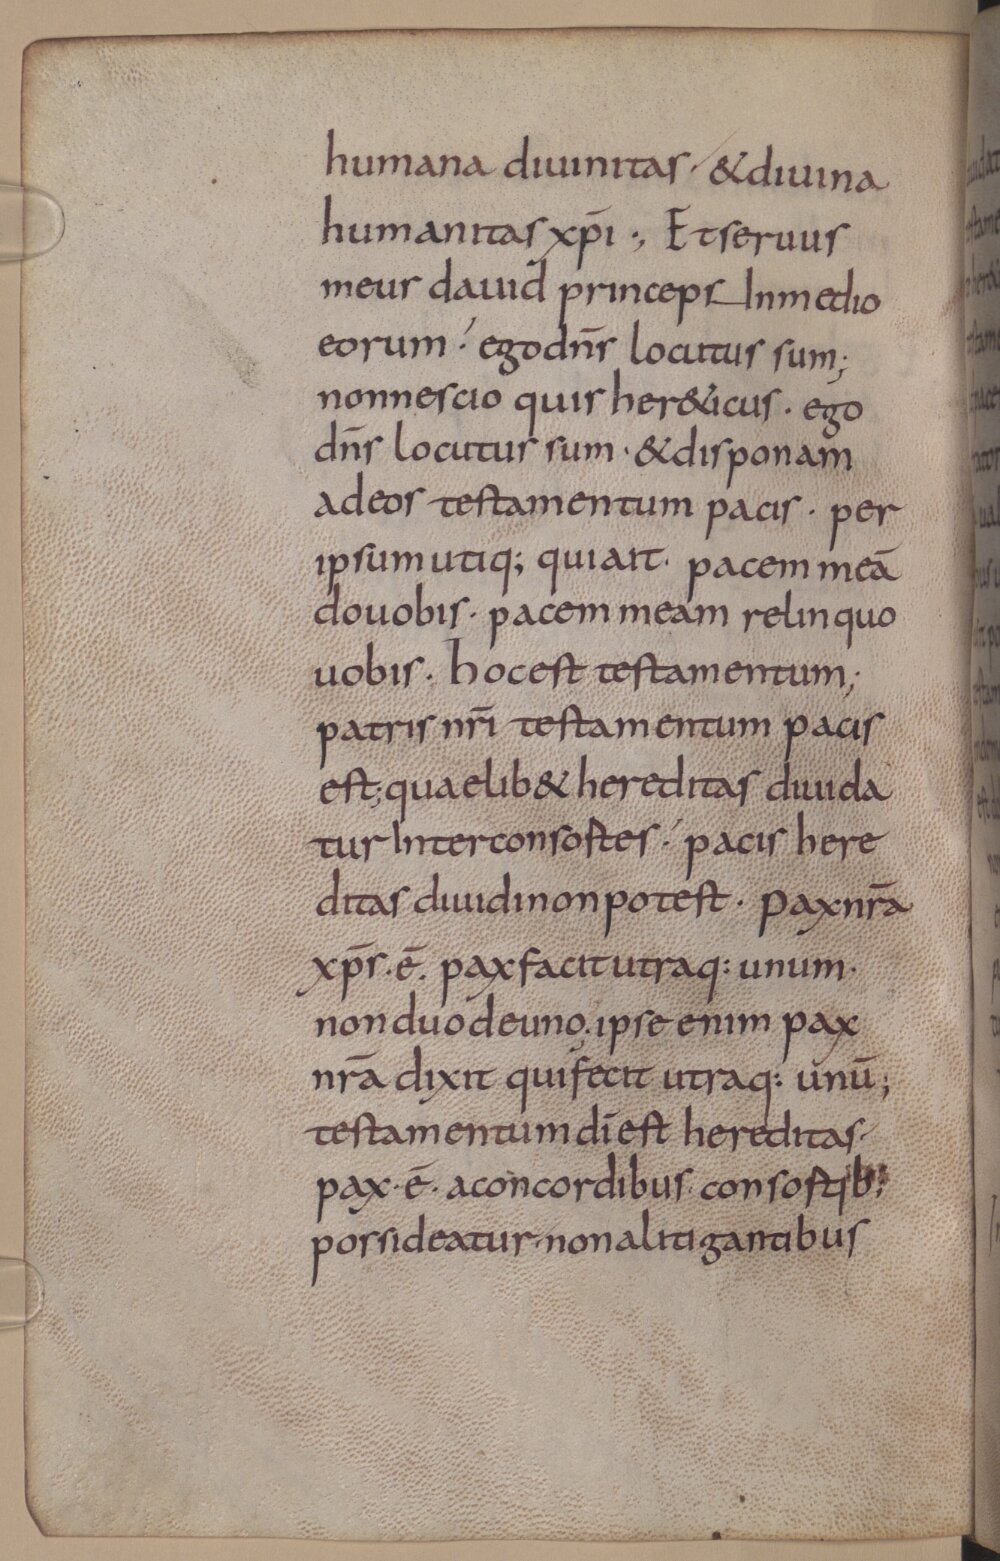 humana diuinitas · &diuina
humanitas xp̄i ·, Et seruus
meus dauid princeps In medio
eorum · ego dn̄s locutus sum;
non nescio quis her&icus · ego
dn̄s locutus sum · &disponam
ad eos testamentum pacis · per
ipsum utiq; qui ait · pacem meā
do uobis · pacem meam relinquo
uobis · hoc est testamentum;
patris nr̄i testamentum pacis
est; quaelib& hereditas diuida
tur Inter consostes · pacis here
ditas diuidi non potest · Pax nr̄a
xp̄s · ē · pax facit utraq: unum ·
non duo de uno. ipse enim pax
nr̄a dixit qui fecit utraq: unū;
testamentum dī est hereditas ·
pax · ē · a concordibus consostib;
possideatur · non alitigantibus